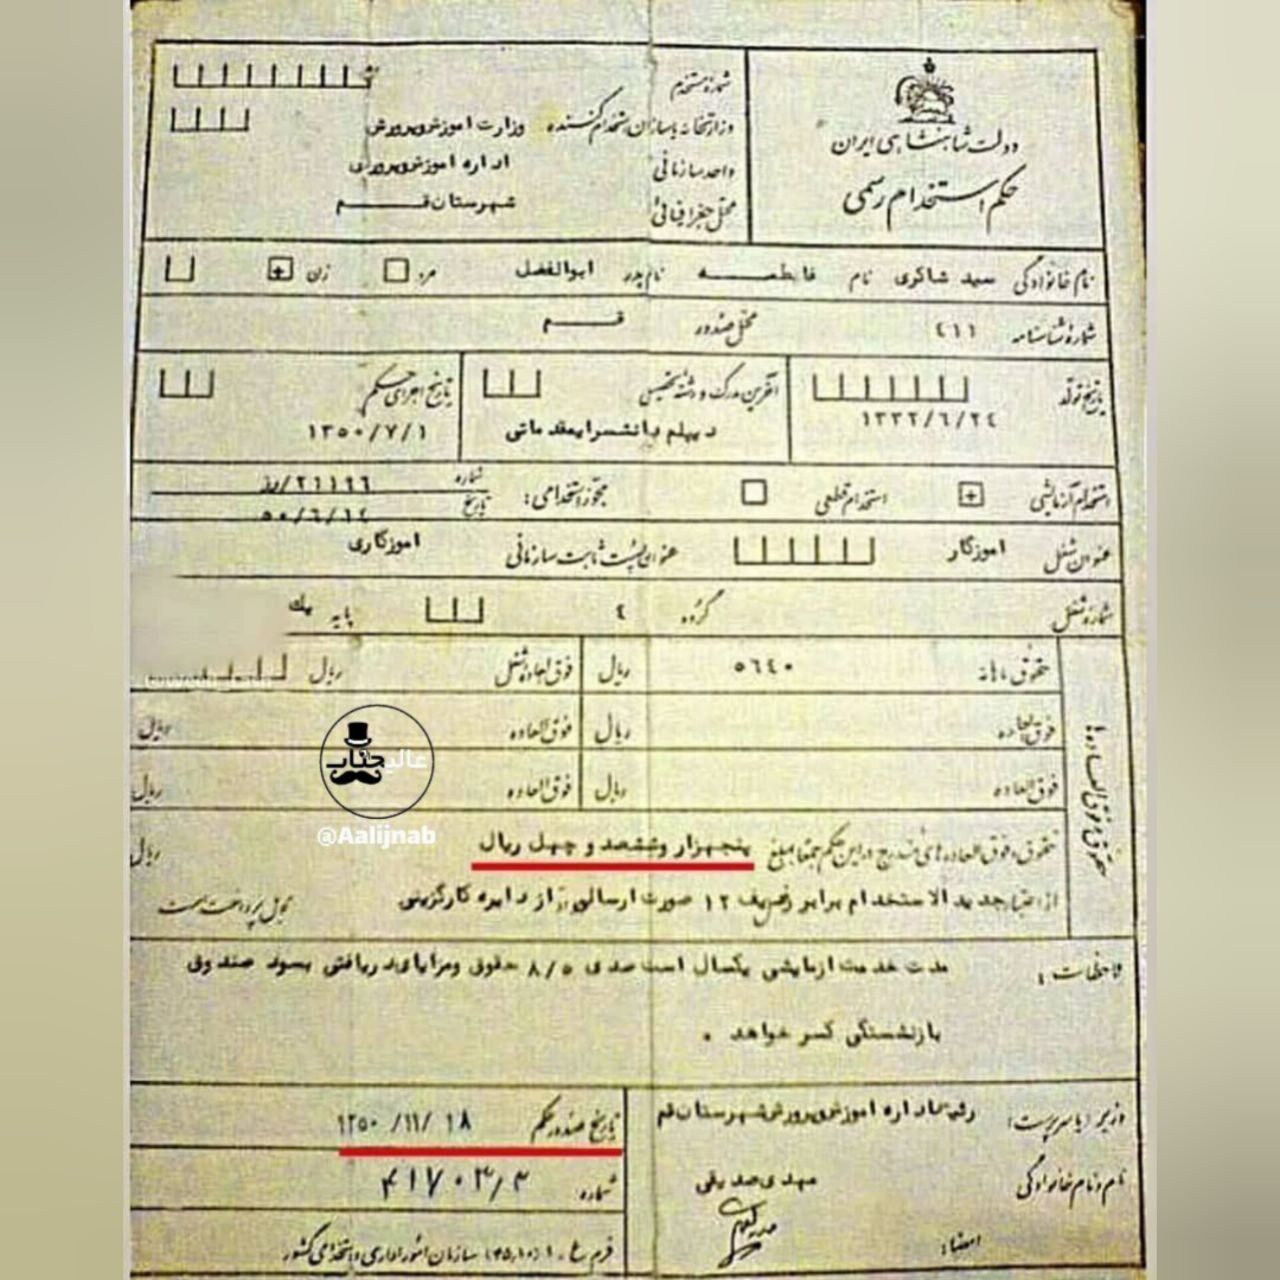 دولت شاهنشاهی ایران
حکم استخدام رسمی
شماره مستخدم
وزارتخانه یا سازمان استخدام کننده وزارت اموزش وپرورش
واحد سازمانی اداره اموزش وپرورش
محل جغرافیائی شهرستان قم
نام خانوادگی سید شاکری نام فاطمه نام پدر ابوالفضل مرد زن
شمارهٔ شناسنامه ٤١١ محل صدور قم
تاریخ تولد ١٣٣٢/٦/٢٤
آخرین مدرک و رشته تحصیلی دیپلم دانشسرایمقدماتی
تاریخ اجرای حکم ١٣٥٠/٧/١
استخدام آزمایشی استخدام قطعی مجوز استخدامی: شماره ٢١١٩٦/رز
تاریخ ٥٠/٦/١٤
عنوان شغل اموزگار عنوان پست ثابت سازمانی اموزگاری
شماره شغل گروه ٤ پایه یک
حقوق و فوق العاده ها
حقوق ماهانه ٥٦٤٠ ریال فوق العاده شغل ریال
فوق العاده ریال فوق العاده ریال
فوق العاده ریال فوق العاده ریال
حقوق و فوق العاده های مندرج در این حکم جمعا بمبلغ پنجهزار وششصد و چهل ریال ریال
از اعتبار جدید الاستخدام برابر ردیف ١٢ صورت ارسالی از دایره کارگزینی قابل پرداخت است
ملاحظات : مدت خدمت ازمایشی یکسال است صدی ٨/٥ حقوق ومزایای دریافتی بسود صندوق
بازنشستگی کسر خواهد .
وزیر (یا سرپرست): رئیس اداره اموزش وپرورش شهرستان قم
نام و نام خانوادگی مهدی صدیقی
امضاء:
تاریخ صدور حکم ۱۳۵۰/۱۱/۱۸
شماره ۴۱۷۰۳/۳
فرم ع ـ ١ (٤٥،١٠) سازمان امور اداری و استخدامی کشور
عالیجناب
@Aalijnab